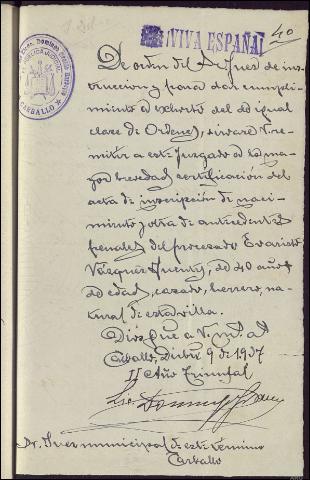 ¡VIVA ESPAÑA!
40
CARBALLO
De orden del Sr Juez de ins-
truccion y para dar cumpli-
miento a exhorto del de igual
clase de Ordenes, sirvase V. re-
mitir a este Juzgado a la ma-
yor brevedad, certificación del
acta de inscripción de naci-
miento y otra de antecedentes
penales del procesado Evaristo
Vázquez, de 40 años
de edad, casado, herrero, na-
tural de esta villa.
Dios gue a V. m. a.
Carballo, Dibre 9 de 1937
II Año Triunfal
Sr. Juez municipal de este término
Carballo